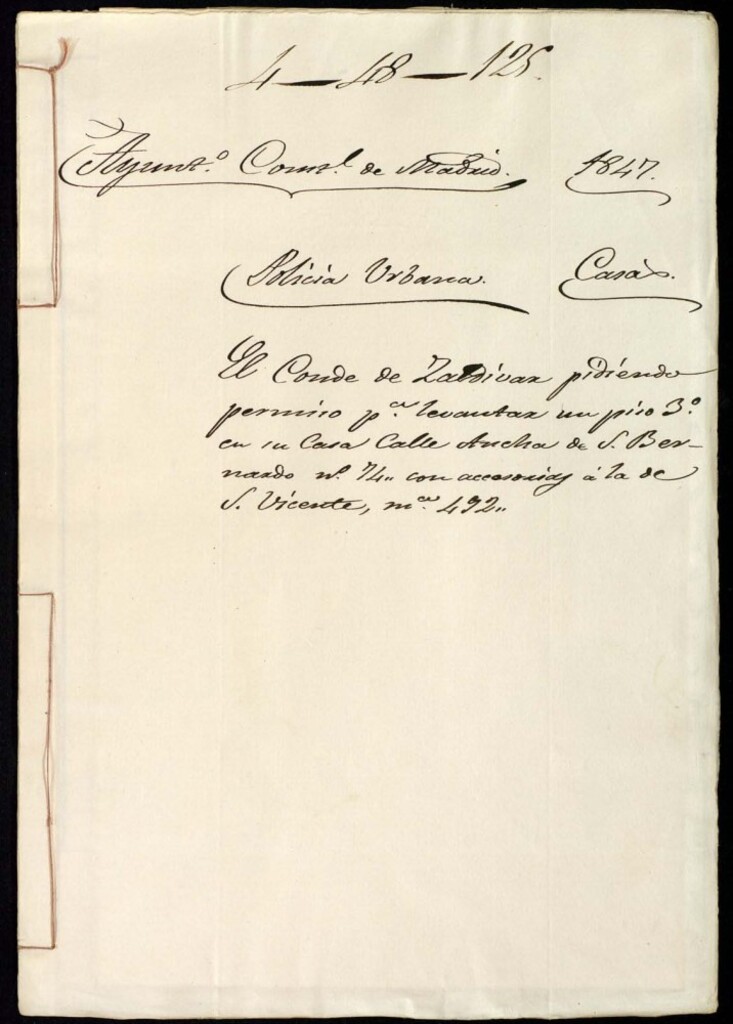 4 — 48 — 125.
Ayunt.º Const.l de Madrid. 1847.
Policia Urbana. Casas.
El Conde de Zaldivar pidiendo
permiso p.ª levantar un piso 3.º
en su Casa Calle Ancha de S. Ber-
nardo n.º 74,, con accesorias á la de
S. Vicente, m.ª 492,,